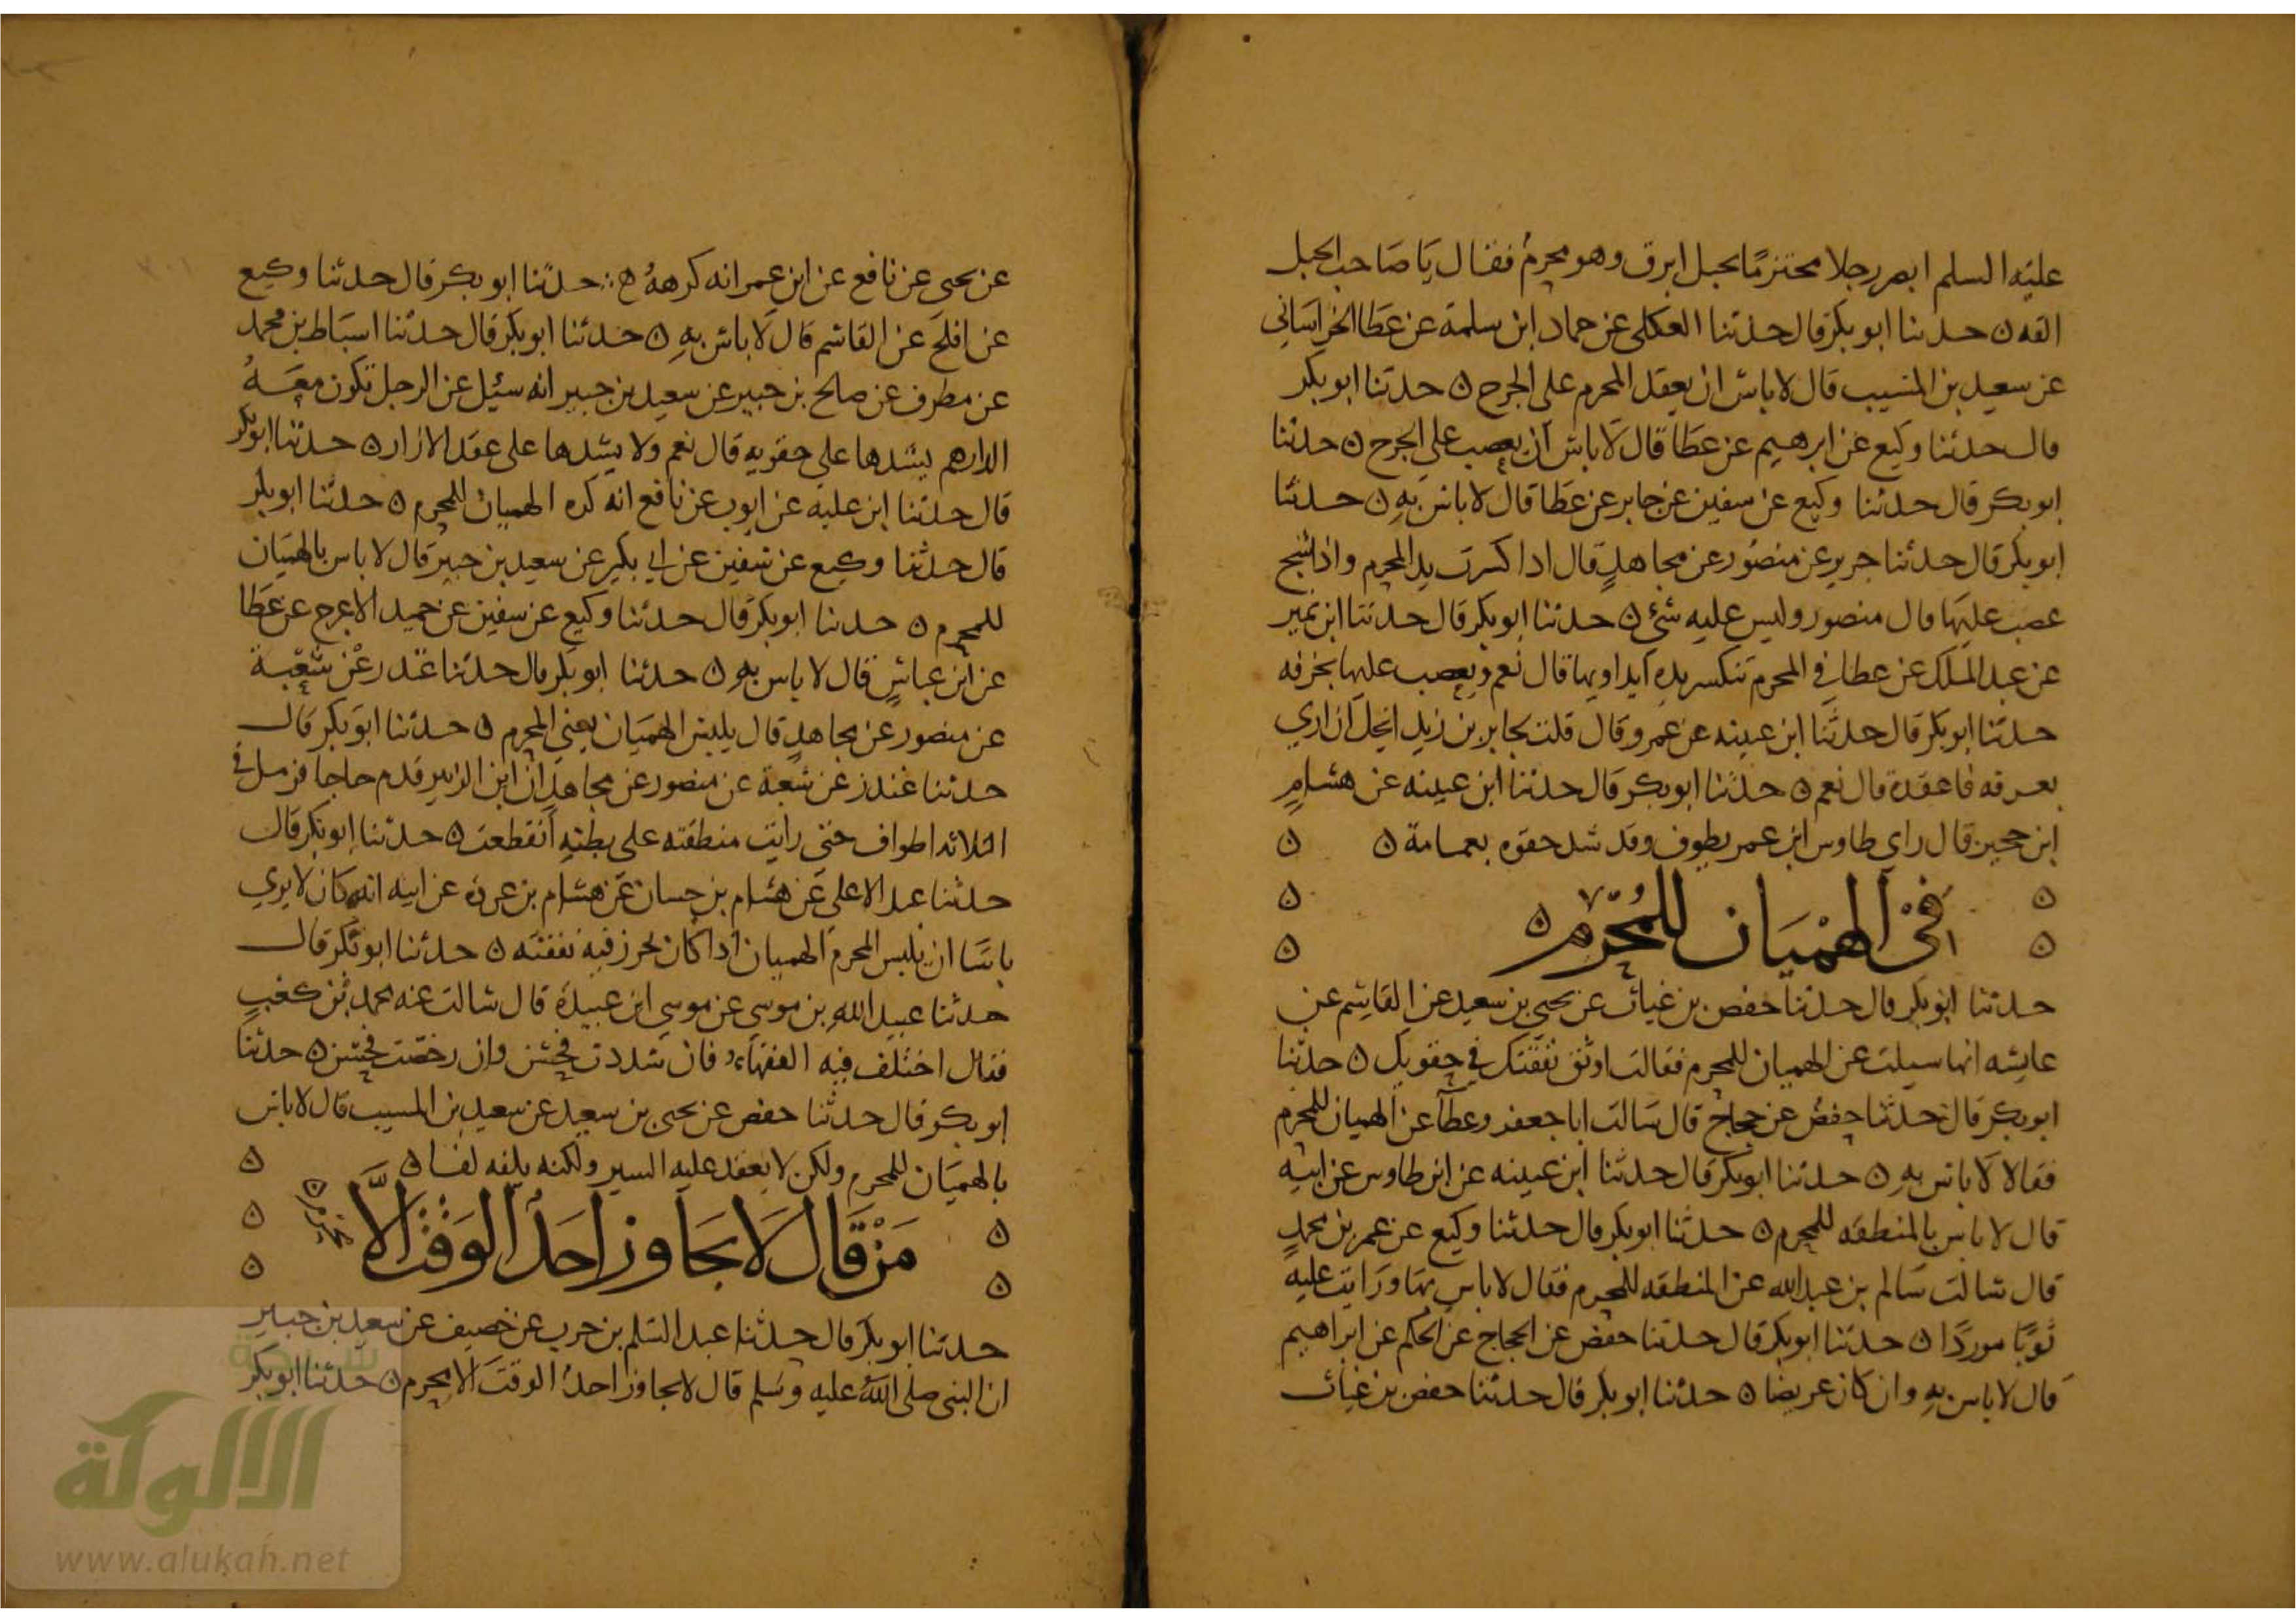 عليه السلم ابصر رجلا محتزمًا بحبل ابرق وهو محرمٌ فقال يَا صَاحب الحبل
القه ن حدثنا ابو بكر قال حدثنا العكلي عن حماد ابن سلمة عن عطا الخراساني
عن سعيد بن المسيب قال لا باس ان يعقد المحرم على الجرح ن حدثنا ابو بكر
قال حدثنا وكيع عن ابرهيم عن عطا قال لا باس ان يعصب على الجرح ن حدثنا
ابو بكر قال حدثنا وكيع عن سفين عن جابر عن عطا قال لا باس بهِ ن حدثنا
ابو بكر قال حدثنا جرير عن منصور عن مجاهدٍ قال اذا كسرت يد المحرم واذا شج
عصب عليها قال منصور وليس عليه شئ ن حدثنا ابو بكر قال حدثنا ابن نمير
عن عبد الملك عن عطا في المحرم تنكسر يده ايداويها قال نعم ويعصب عليها بخرقه
حدثنا ابو بكر قال حدثنا ابن عيينه عن عمرو قال قلت لجابر بن زيد انحل ازاري
بعرفه فاعقده قال نعم ن حدثنا ابو بكر قال حدثنا ابن عيينه عن هشامٍ
ابن حجير قال راي طاوس ابن عمر يطوف وقد شد حقوه بعمامة ن
في الهِمْيَان للمُحْرِم ن
حدثنا ابو بكر قال حدثنا حفص بن غياث عن يحيي بن سعيد عن القاسم عن
عايشه انها سيلت عن الهميان للمحرم فقالت اوثق نفقتك في حقويك ن حدثنا
ابو بكر قال حدثنا حفصٌ عن حجاج قال سَالت ابا جعفر وعطآ عن الهميان للمحرم
فقالا لا باس بهِ ن حدثنا ابو بكر قال حدثنا ابن عيينه عن ابن طاوس عن ابيه
قال لا باس بالمنطقه للمحرم ن حدثنا ابو بكر قال حدثنا وكيع عن عمر بن محمدٍ
قال سالت سَالم بن عبد الله عن المنطقه للمحرم فقال لا باس بها ورَايت عليهِ
ثوبًا موردًا ن حدثنا ابو بكر قال حدثنا حفص عن الحجاج عن الحكم عن ابراهيم
قال لا باس بهِ وان كان عريضا ن حدثنا ابو بكر قال حدثنا حفص بن غياث
عن يحيى عن نافع عن ابن عمر انه كرههُ ه حدثنا ابو بكر قال حدثنا وكيع
عن افلح عن القاسم قال لا باس بهِ ن حدثنا ابو بكر قال حدثنا اسبَاط بن محمد
عن مطرف عن صالح بن جبير عن سعيد بن جبير انه سئيل عن الرجل تكون معَهُ
الدراهم يشدها على حقويهِ قال نعم ولا يشدها على عقد الازار ن حدثنا ابو بكر
قال حدثنا ابن عليه عن ايوب عن نافع انه كره الهميان للمحرم ن حدثنا ابو بكر
قال حدثنا وكيع عن سفين عن ابي بكير عن سعيد بن جبير قال لا باس بالهميَان
للمحرم ن حدثنا ابو بكر قال حدثنا وكيع عن سفين عن حميد الاعرج عن عَطا
عن ابن عباسٍ قال لا باس بهِ ن حدثنا ابو بكر قال حدثنا غندر عن شعبة
عن منصور عن مجاهدٍ قال يلبس الهميَان يعني المحرم ن حدثنا ابو بكر قال
حدثنا غندر عن شعبة عن منصور عن مجاهد ان ابن الزبير قدم حاجا فرمل في
الثلاثه اطواف حتى رايت منطقته على بطنهِ انقطعت ن حدثنا ابو بكر قال
حدثنا عبد الاعلى عن هشام بن حسان عن هشام بن عروه عن ابيه انه كان لا يري
باسًا ان يلبس المحرم الهميان اذا كان يحرز فيه نفقته ن حدثنا ابو بكر قال
حدثنا عبيد الله بن موسى عن موسى ابن عبيدة قال سالت عنه محمد بن كعبٍ
فقال اختلف فيه الفقهاء فان شددت فحسن وان رخصت فحسن ن حدثنا
ابو بكر قال حدثنا حفص عن يحيى بن سعيد عن سعيد بن المسيب قال لا باس
بالهميَان للمحرم ولكن لا يعقد عليه السير ولكنه يلفه لفا ن
مَنْ قَال لَا يجَاوز احَد الوَقْتَ الَّا محرم ن
حدثنا ابو بكر قال حدثنا عبد السّلم بن حرب عن خصيف عن سعيد بن جبير
ان النبى صلى اللهُ عليه وسَلم قال لا يجاوز احدٌ الوقتَ الا محرم ن حدثنا ابو بكر
شبكة
الألوكة
www.alukah.net